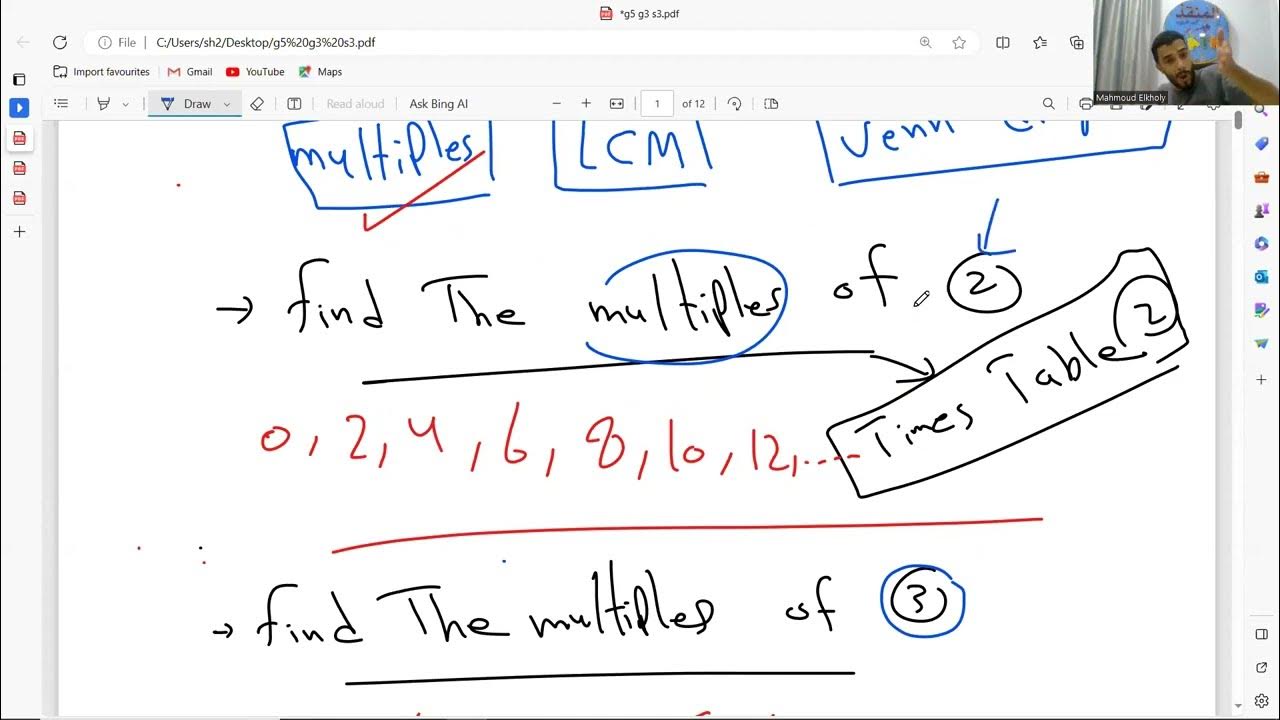 *g5 g3 s3.pdf
File C:/Users/sh2/Desktop/g5%20g3%20s3.pdf
Import favourites Gmail YouTube Maps
Draw Read aloud 1 of 12
Mahmoud Elkholy
المنقذ
multiples LCM Venn
→ find The multiples of 2
Times Table 2
0, 2, 4, 6, 8, 10, 12, ....
→ find The multiples of 3